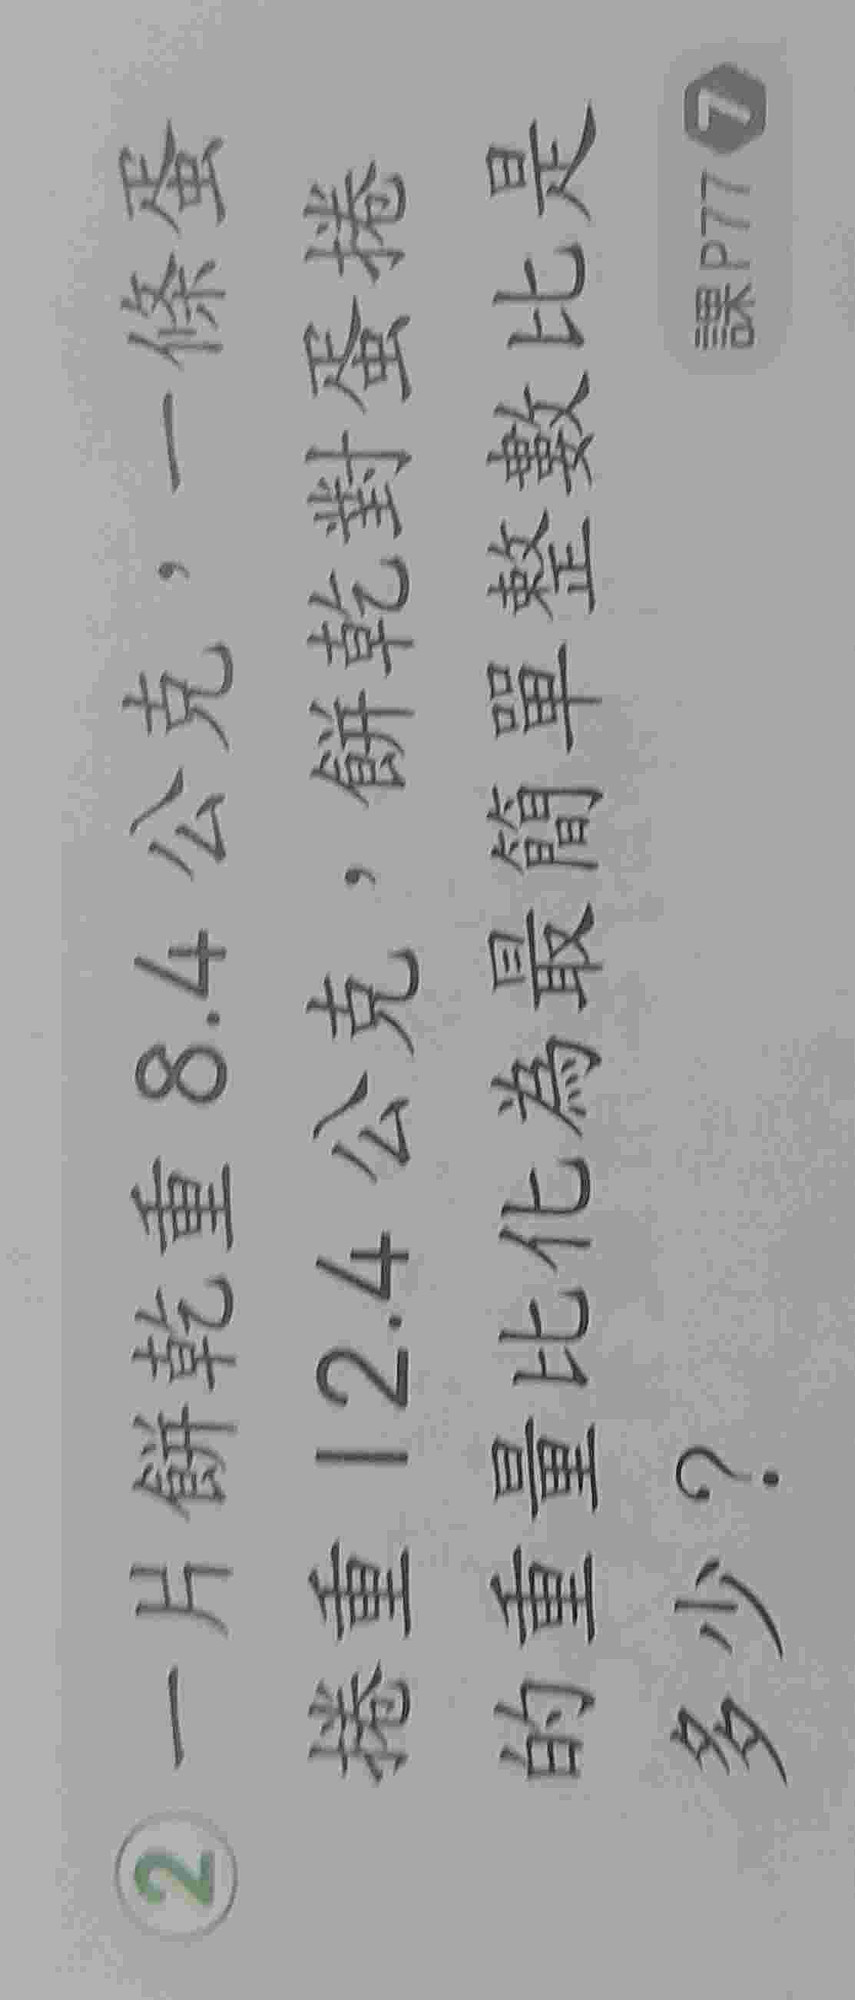 2 一片餅乾重8.4公克，一條蛋
捲重12.4公克，餅乾對蛋捲
的重量比化為最簡單整數比是
多少？
課P77 7